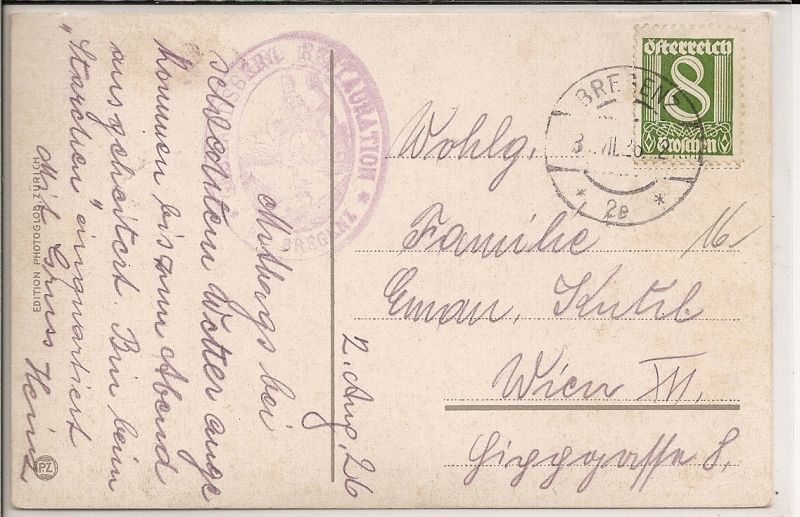 2. Aug. 26
Mittags bei
schlechstem Wetter ange
kommen bis zum Abend
ausgeheitert. Bin beim
"Starchen" einquartiert
Mit Gruss Heinz
Wohlg.
Familie 16
Eman. Kutil
Wien III.
Hippgasse 8.
österreich
8
Groschen
BREGENZ
3 VIII. 26
* 2e *
RESTAURATION *
BREGENZ
EDITION PHOTOGLOB ZÜRICH
PZ